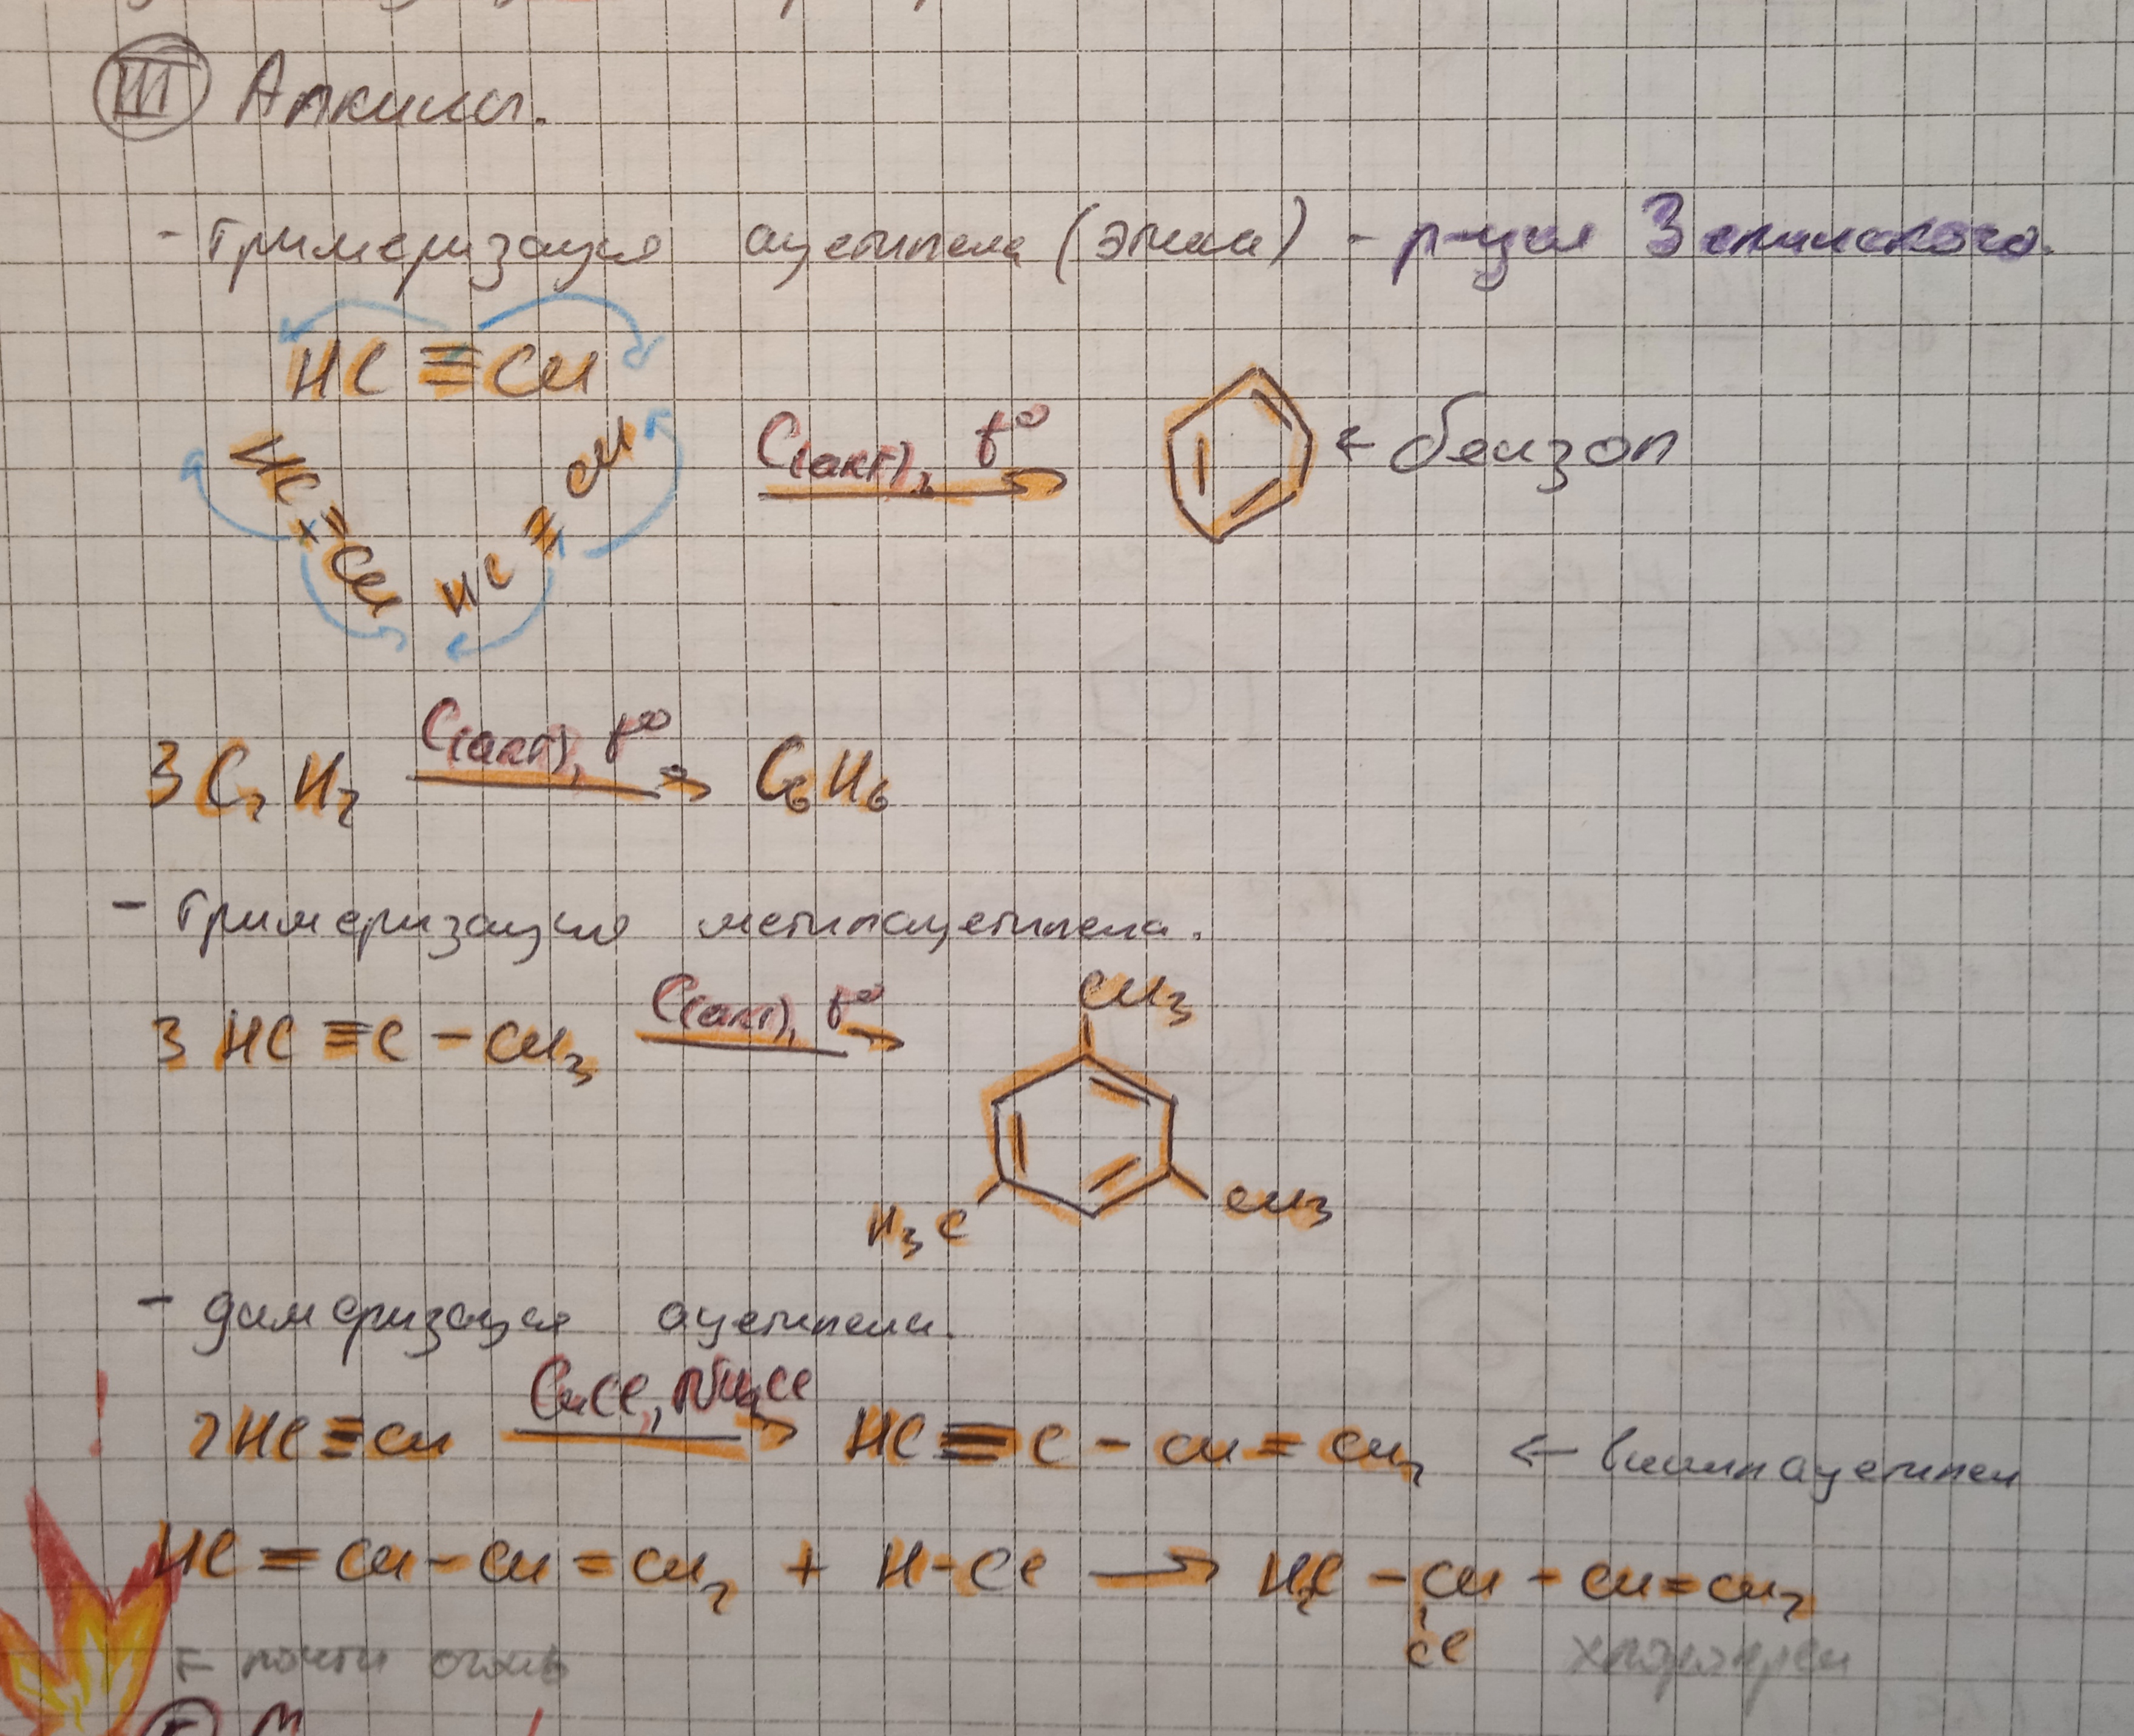 III Алкины.
- тримеризация ацетилена (этина) - р-ция Зелинского.
HC ≡ CH
HC ≡ CH
HC ≡ CH
C(акт), t°
← бензол
3 C2H2 C(акт), t° → C6H6
- тримеризация метилацетилена.
3 HC ≡ C - CH3 C(акт), t° →
CH3
H3C
CH3
- димеризация ацетилена.
! 2HC ≡ CH CuCl, NH4Cl → HC ≡ C - CH = CH2 ← винилацетилен
HC = CH - CH = CH2 + H-Cl → H2C - CH - CH = CH2
Cl
почти огонь хлоропрен